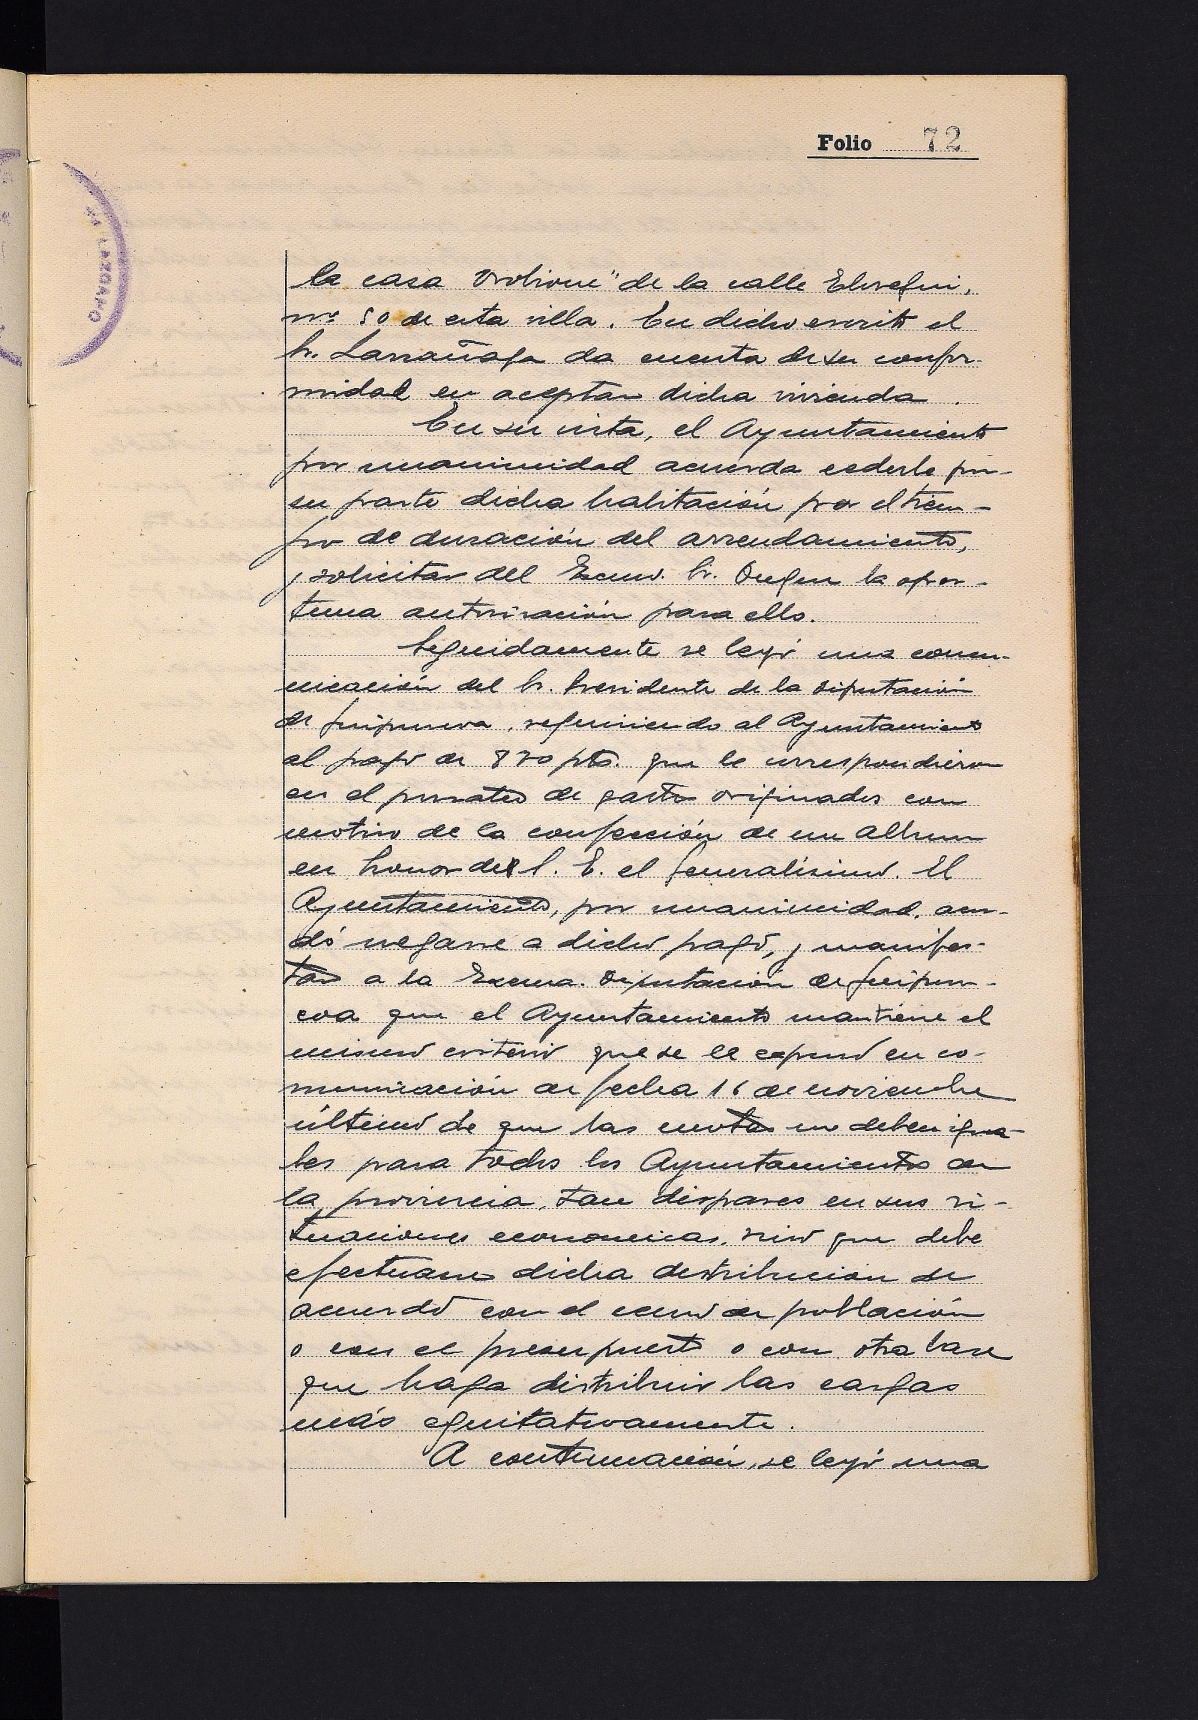 Folio 72
la casa de la calle
nº 50 de esta villa. En dicho escrito el
Sr. Larrañaga da cuenta de su confor-
midad en aceptar dicha vivienda.
En su vista, el Ayuntamiento
por unanimidad acuerda cederle por
su parte dicha habitación por el tiem-
po de duración del arrendamiento,
y solicitar del Excmo. Sr. la opor-
tuna autorización para ello.
Seguidamente se leyó una comu-
nicación del Sr. Presidente de la Diputación
de Guipuzcoa, requiriendo al Ayuntamiento
al pago de 870 pts. que le correspondieron
en el prorrateo de gastos originados con
motivo de la confección de un album
en honor de S. E. el Generalísimo. El
Ayuntamiento, por unanimidad, acor-
dó negarse a dicho pago, y manifes-
tar a la Excma. Diputación de Guipuz-
coa que el Ayuntamiento mantiene el
mismo criterio que se le expuso en co-
municación de fecha 16 de noviembre
último de que las cuotas no deben igua-
les para todos los Ayuntamientos de
la provincia, tan dispares en sus si-
tuaciones economicas, sino que debe
efectuarse dicha distribucion de
acuerdo con el censo de población
o con el presupuesto o con otra base
que haga distribuir las cargas
más equitativamente.
A continuación, se leyó una
LAZGAPO